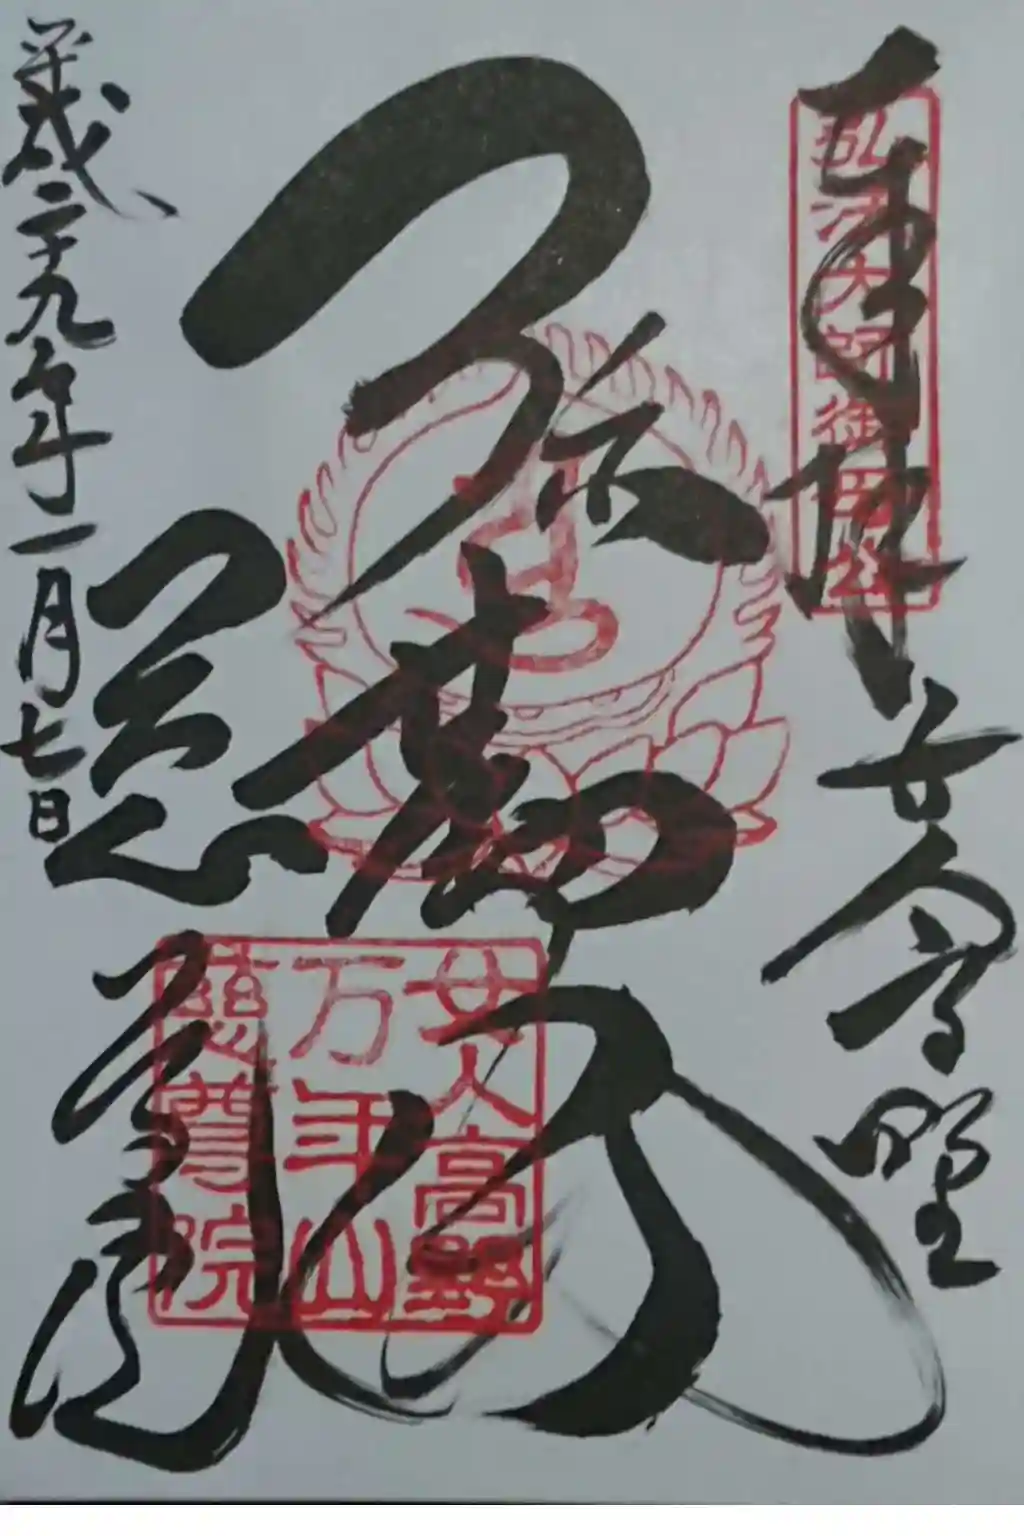 奉拝
女人高野
弘法大師御母公
弥勒仏
慈尊院
女人高野
万年山
慈尊院
平成二十九年一月七日